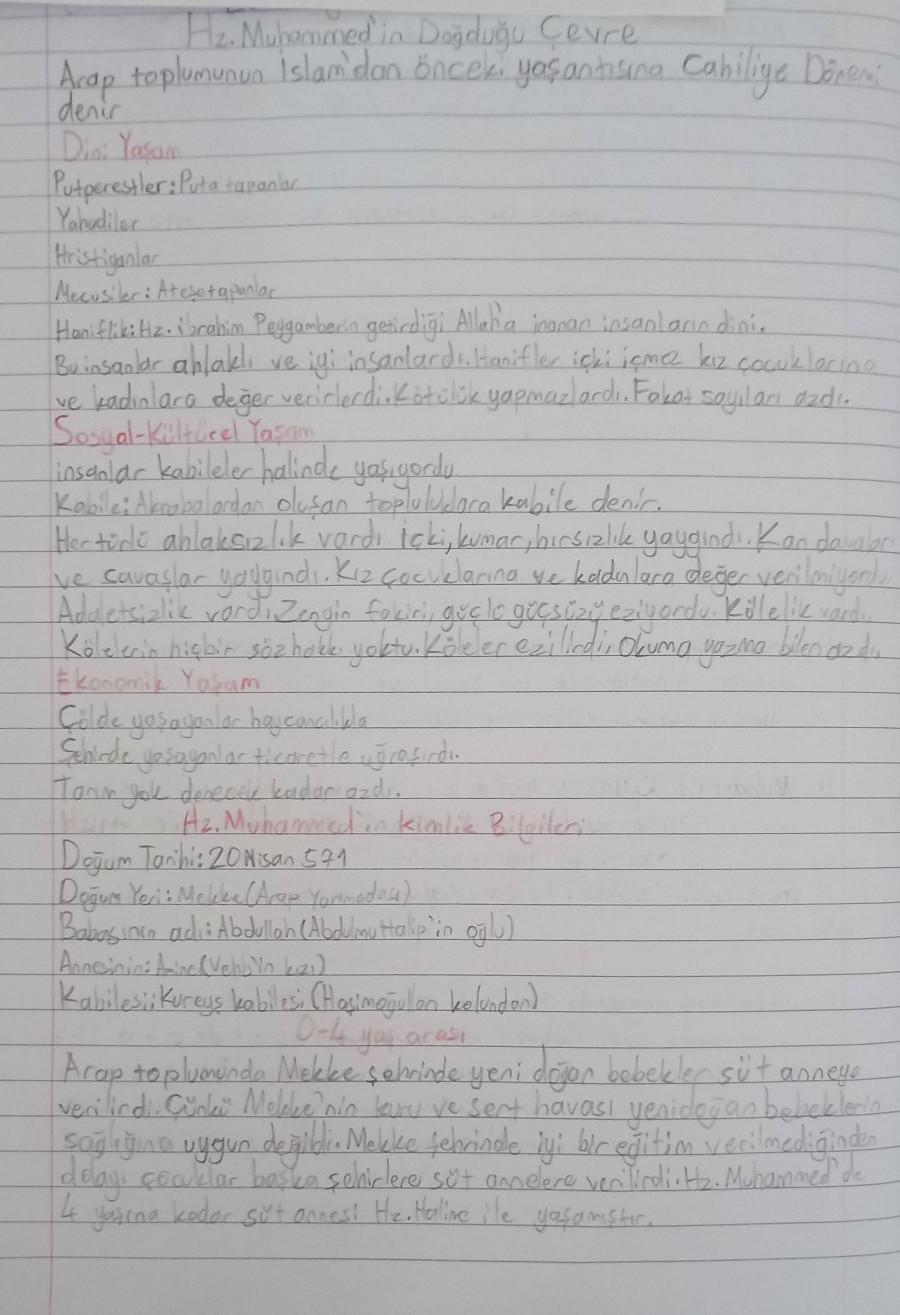 Hz. Muhammed'in Doğduğu Çevre
Arap toplumunun İslam'dan önceki yaşantısına Cahiliye Dönemi
denir
Dini Yaşam
Putperestler: Puta tapanlar
Yahudiler
Hristiyanlar
Mecusiler: Ateşe tapanlar
Haniflik: Hz. İbrahim Peygamberin getirdiği Allah'a inanan insanların dini.
Bu insanlar ahlaklı ve iyi insanlardı. Hanifler içki içmez kız çocuklarına
ve kadınlara değer verirlerdi. Kötülük yapmazlardı. Fakat sayıları azdı.
Sosyal-Kültürel Yaşam
insanlar kabileler halinde yaşıyordu
Kabile: Akrabalardan oluşan topluluklara kabile denir.
Her türlü ahlaksızlık vardı içki, kumar, hırsızlık yaygındı. Kan davaları
ve savaşlar yaygındı. Kız çocuklarına ve kadınlara değer verilmiyordu
Adaletsizlik vardı. Zengin fakiri, güçlü güçsüzü eziyordu. Kölelik vardı.
Kölelerin hiçbir söz hakkı yoktu. Köleler ezilirdi, Okuma yazma bilen azdı.
Ekonomik Yaşam
Çölde yaşayanlar hayvancılıkla
Şehirde yaşayanlar ticaretle uğraşırdı.
Tarım yok denecek kadar azdı.
Hz. Muhammed'in Kimlik Bilgileri
Doğum Tarihi: 20 Nisan 571
Doğum Yeri: Mekke (Arap Yarımadası)
Babasının adı: Abdullah (Abdulmuttalip'in oğlu)
Annesinin: Amine (Vehb'in kızı)
Kabilesi: Kureyş kabilesi (Haşimoğulları kolundan)
0-4 yaş arası
Arap toplumunda Mekke şehrinde yeni doğan bebekler süt anneye
verilirdi. Çünkü Mekke'nin kuru ve sert havası yenidoğan bebeklerin
sağlığına uygun değildi. Mekke şehrinde iyi bir eğitim verilmediğinden
dolayı çocuklar başka şehirlere süt annelere verilirdi. Hz. Muhammed'de
4 yaşına kadar süt annesi Hz. Halime ile yaşamıştır.